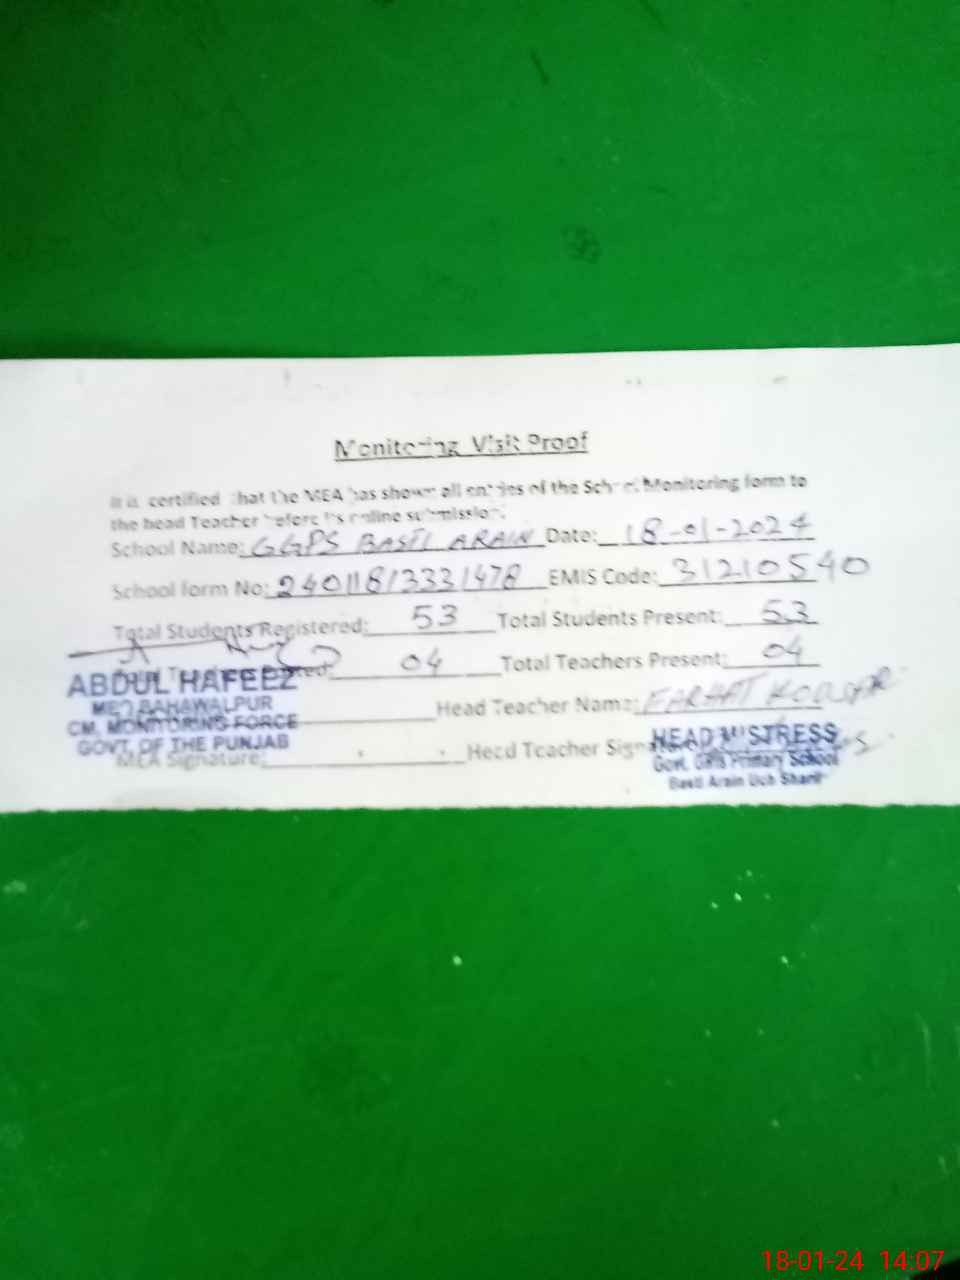 Monitoring Visit Proof
It is certified that the MEA has shown all entries of the School Monitoring form to
the head Teacher before its online submission.
School Name: GGPS BASTI ARAIN Date: 18-01-2024
School form No: 240118/3331478 EMIS Code: 31210540
Total Students Registered: 53 Total Students Present: 53
04 Total Teachers Present: 04
ABDUL HAFEEZ
MEO BAHAWALPUR
CM, MONITORING FORCE
GOVT. OF THE PUNJAB
Head Teacher Name: FARHAT
MEA Signature: Head Teacher
HEAD MISTRESS
Govt. Girls Primary School
Basti Arain Uch Sharif
18-01-24 14:07